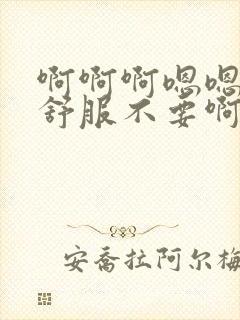 啊啊啊嗯嗯
舒服不要啊
安乔拉阿尔梅